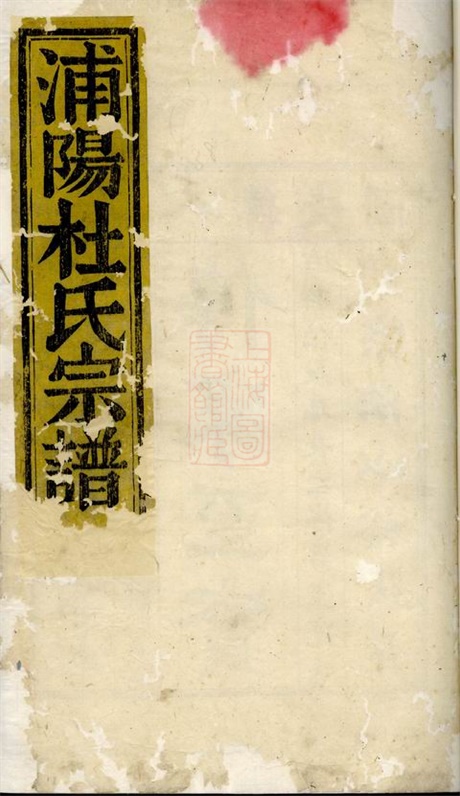 浦陽杜氏宗譜
上海圖
書館藏